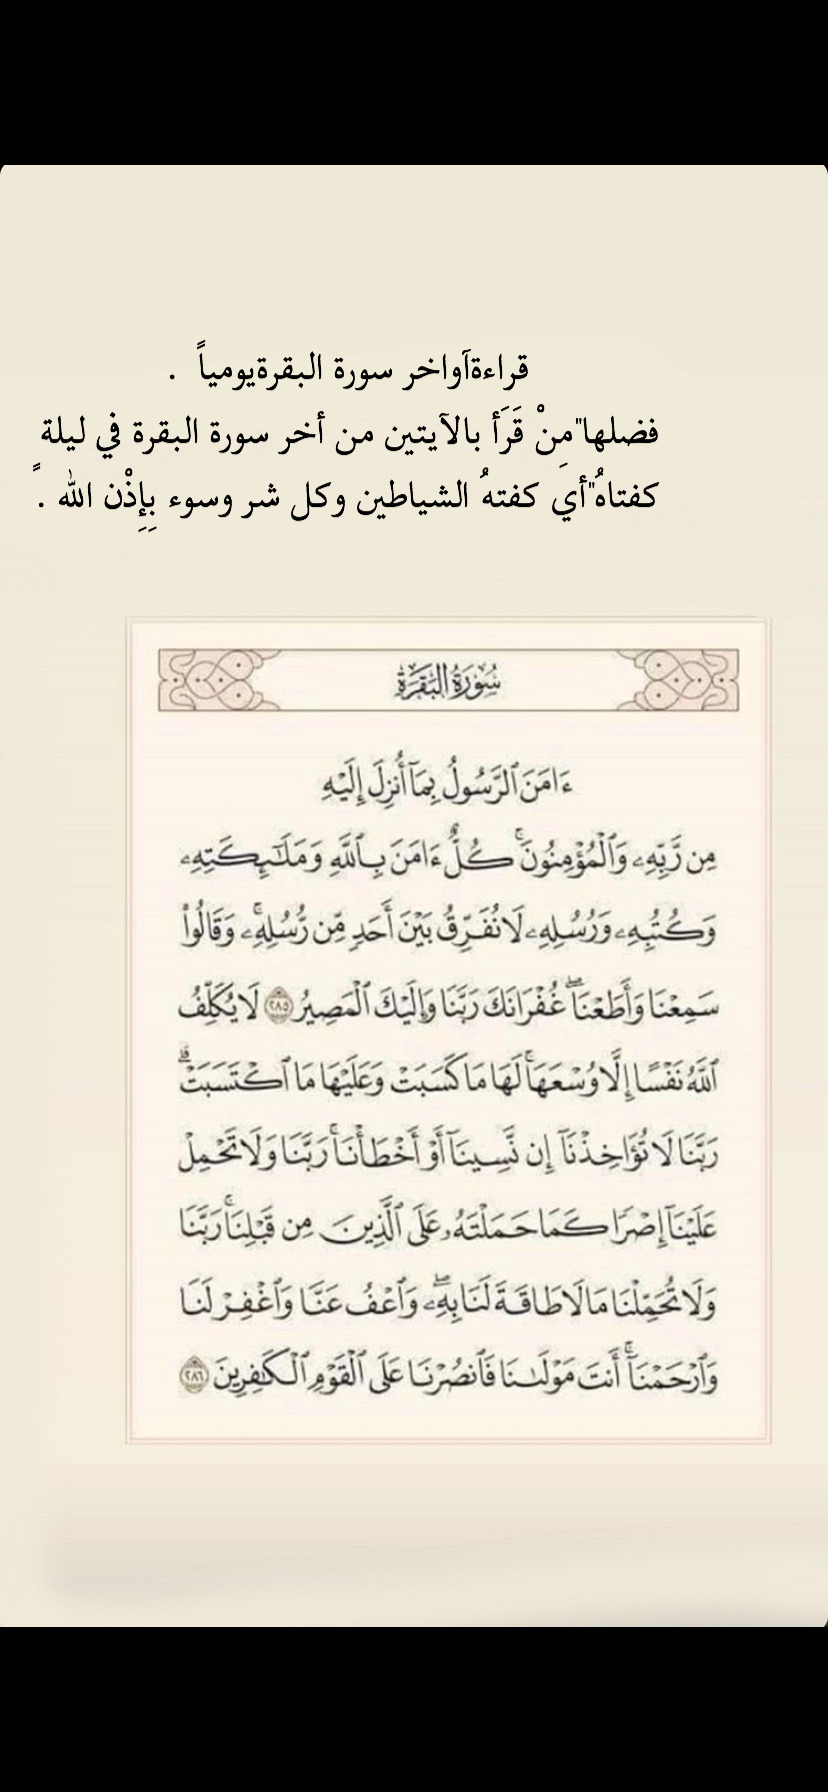 قراءةآواخر سورة البقرةيومياً .
فضلها"مِنْ قَرَأ بالآيتين من أخر سورة البقرة في ليلة
كفتاهُ"أيَ كفتهُ الشياطين وكل شر وسوء بِإِذْن الله .ً
سُورَةُ البَقَرَةِ
ءَامَنَ ٱلرَّسُولُ بِمَآ أُنزِلَ إِلَيْهِ
مِن رَّبِّهِۦ وَٱلْمُؤْمِنُونَۚ كُلٌّ ءَامَنَ بِٱللَّهِ وَمَلَـٰٓئِكَتِهِۦ
وَكُتُبِهِۦ وَرُسُلِهِۦ لَا نُفَرِّقُ بَيْنَ أَحَدٍ مِّن رُّسُلِهِۦۚ وَقَالُوا۟
سَمِعْنَا وَأَطَعْنَاۖ غُفْرَانَكَ رَبَّنَا وَإِلَيْكَ ٱلْمَصِيرُ ٢٨٥ لَا يُكَلِّفُ
ٱللَّهُ نَفْسًا إِلَّا وُسْعَهَاۚ لَهَا مَا كَسَبَتْ وَعَلَيْهَا مَا ٱكْتَسَبَتْۗ
رَبَّنَا لَا تُؤَاخِذْنَآ إِن نَّسِينَآ أَوْ أَخْطَأْنَاۚ رَبَّنَا وَلَا تَحْمِلْ
عَلَيْنَآ إِصْرًا كَمَا حَمَلْتَهُۥ عَلَى ٱلَّذِينَ مِن قَبْلِنَاۚ رَبَّنَا
وَلَا تُحَمِّلْنَا مَا لَا طَاقَةَ لَنَا بِهِۦۖ وَٱعْفُ عَنَّا وَٱغْفِرْ لَنَا
وَٱرْحَمْنَآۚ أَنتَ مَوْلَىٰنَا فَٱنصُرْنَا عَلَى ٱلْقَوْمِ ٱلْكَـٰفِرِينَ ٢٨٦